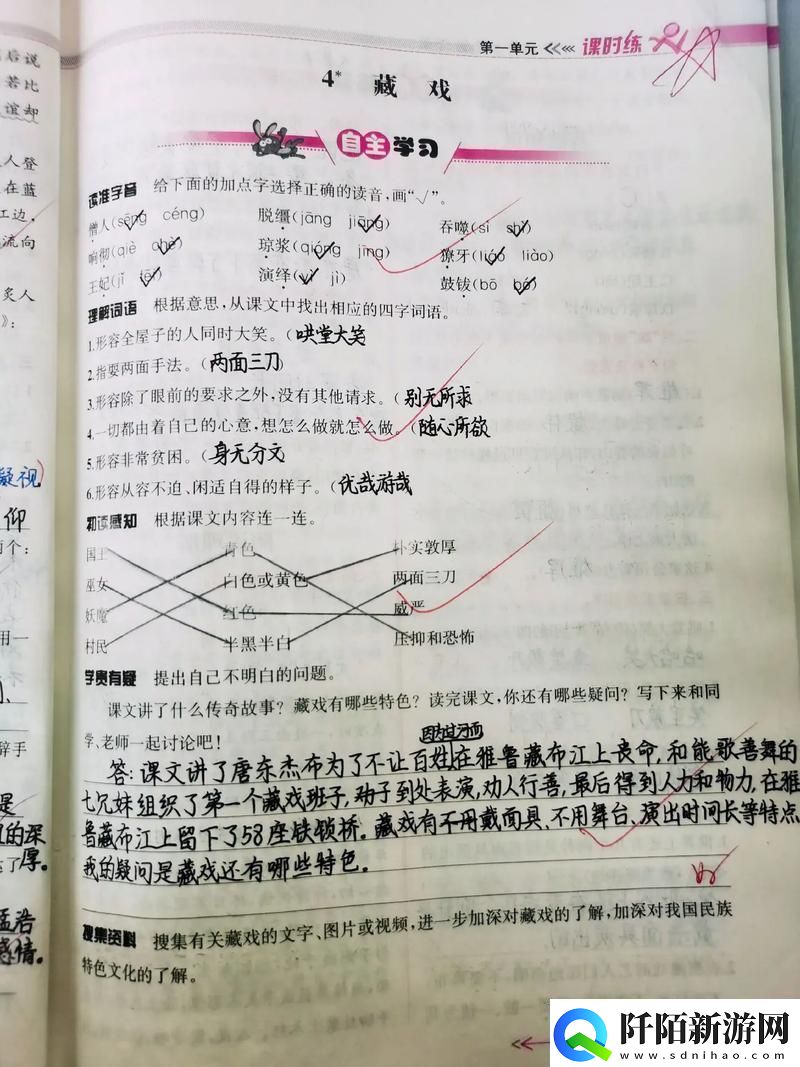 后说
若比
谊却
人登
在蓝
江边，
流向
炙人
》：
凝视)
仰
两个：
用一
辞手
是
的深
了厚。
孟浩
感情。
第一单元 课时练
4* 藏戏
自主学习
读准字音 给下面的加点字选择正确的读音，画“√”。
僧人(sēng céng) 脱缰(jāng jiāng) 吞噬(sì shì)
响彻(qiè chè) 琼浆(qióng jīng) 獠牙(liáo liào)
王妃(jī fēi) 演绎(yì jì) 鼓钹(bō bó)
理解词语 根据意思，从课文中找出相应的四字词语。
1.形容全屋子的人同时大笑。(哄堂大笑
2.指耍两面手法。(两面三刀)
3.形容除了眼前的要求之外，没有其他请求。(别无所求
4.一切都由着自己的心意，想怎么做就怎么做。(随心所欲
5.形容非常贫困。(身无分文
6.形容从容不迫、闲适自得的样子。(优哉游哉
初读感知 根据课文内容连一连。
国王 青色 朴实敦厚
巫女 白色或黄色 两面三刀
妖魔 红色 威严
村民 半黑半白 压抑和恐怖
学贵有疑 提出自己不明白的问题。
课文讲了什么传奇故事？藏戏有哪些特色？读完课文，你还有哪些疑问？写下来和同
学、老师一起讨论吧！
因为过河而
答：课文讲了唐东杰布为了不让百姓在雅鲁藏布江上丧命，和能歌善舞的
七兄妹组织了第一个藏戏班子，助于到处表演，劝人行善，最后得到人力和物力，在雅
鲁藏布江上留下了58座铁锁桥。藏戏有不用戴面具、不用舞台、演出时间长等特点
我的疑问是藏戏还有哪些特色。
搜集资料 搜集有关藏戏的文字、图片或视频，进一步加深对藏戏的了解，加深对我国民族
特色文化的了解。
阡陌新游网
www.sdnihao.com